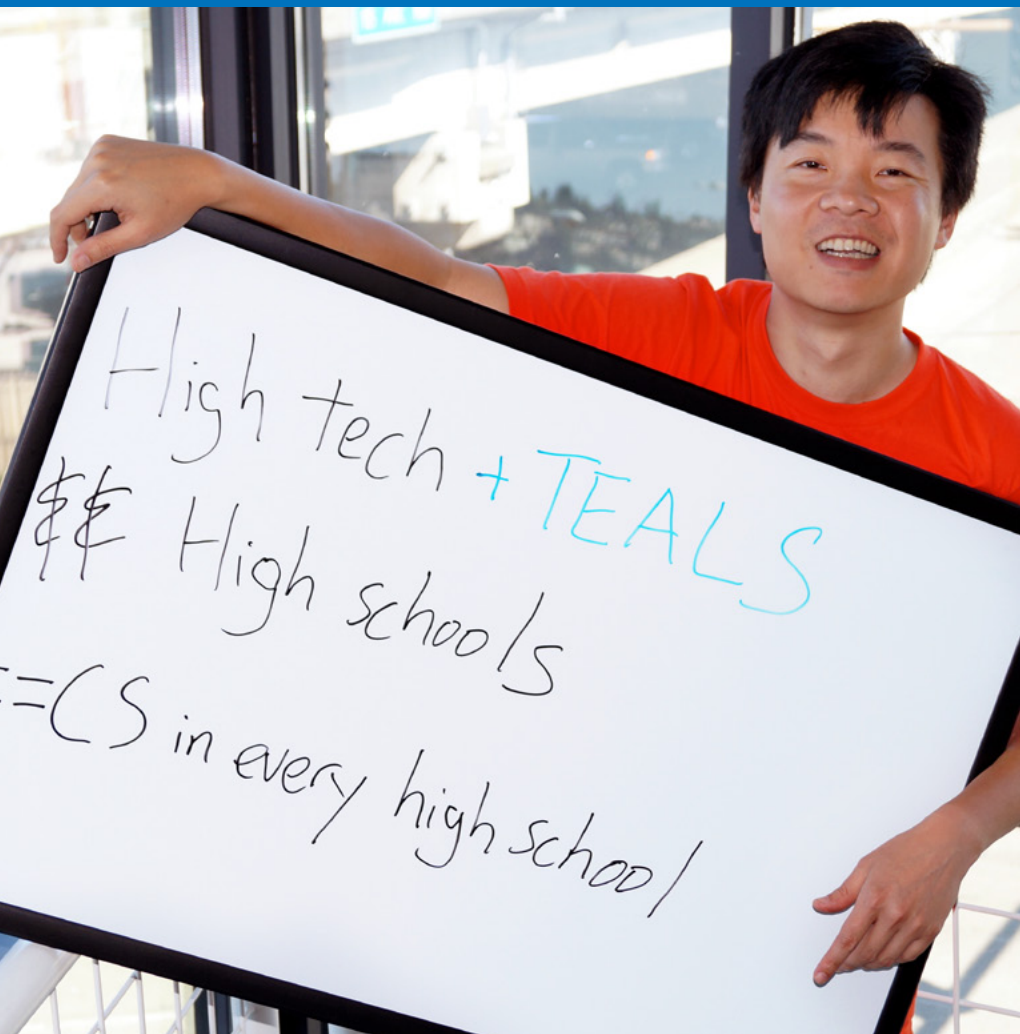 High tech + TEALS
&& High schools
==CS in every high school